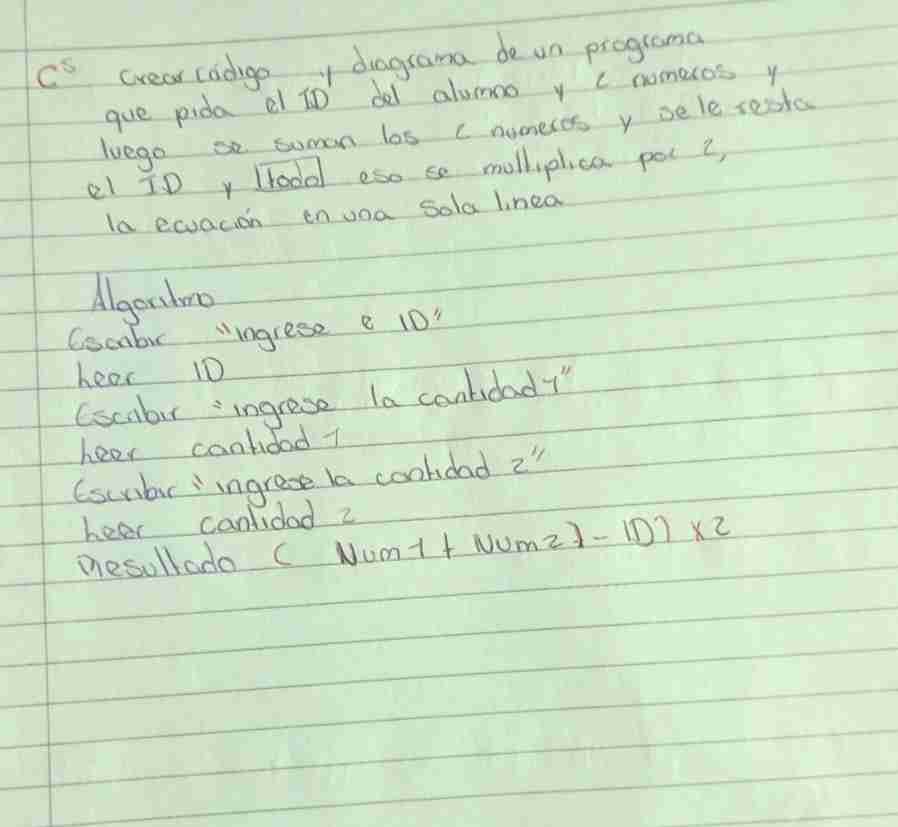 C5 Crear código y diagrama de un programa
que pida el ID del alumno y 2 numeros y
luego se suman los 2 numeros y se le resta
el ID y todo eso se multiplica por 2,
la ecuación en una sola linea
Algoritmo
Escribir "ingrese e ID"
Leer ID
Escribir "ingrese la cantidad 1"
Leer cantidad 1
Escribir "ingrese la cantidad 2"
Leer cantidad 2
Resultado ( Num1 + Num2) - ID) x2